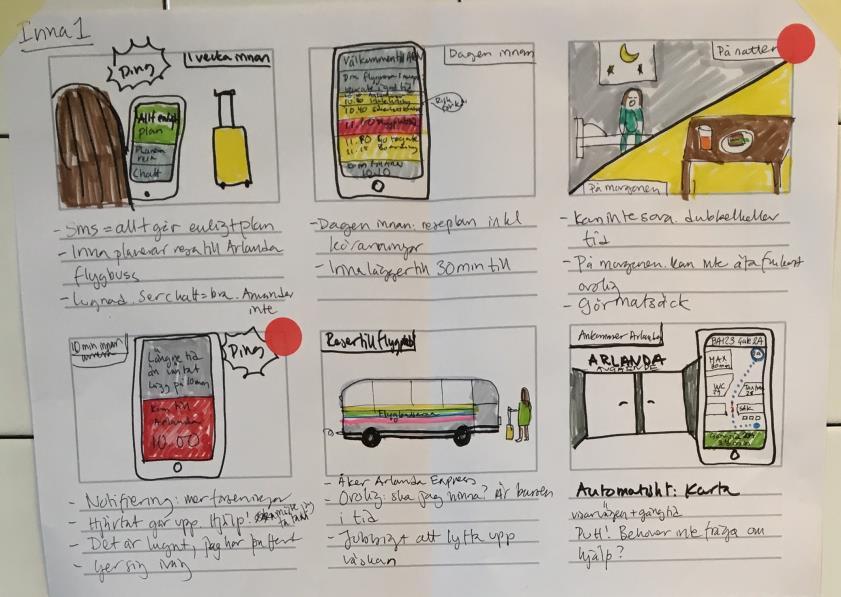 Inna 1
1 vecka innan
Ding
Allt enligt
plan
Planera
resa
Chatt
- Sms = allt går enligt plan
- Inna planerar resa till Arlanda
flygbuss
- Lugnad. Ser chatt = bra. Använder
inte
Dagen innan
Välkommen till
10.40
11.00
11.15
10.10
- Dagen innan: reseplan inkl
köranningar
- Inna lägger till 30 min till
På natten
På morgonen
- Kan inte sova. dubbelkollar
tid
- På morgonen. Kan inte äta frukost
orolig
- Gör matsäck
10 min innan
Ding
Längre tid
än väntat
Lägg på 10 min
Kom till
Arlanda
10.00
- Notifiering: mer förseningar
- Hjärtat går upp. Hjälp!
- Det är lugnt, jag har buffert
- Ger sig iväg
Reser till flygplats
Flygbussarna
- Åker Arlanda Express
- Orolig: ska jag hinna? Är bussen
i tid
- Jobbigt att lyfta upp
väskan
Ankommer Arlanda
ARLANDA
AVGÅENDE
BA123 Gate 2A
2A
MAX
WC
SÄK
Automatiskt: Karta
visar vägen + gångtid
Puh! Behöver inte fråga om
hjälp?